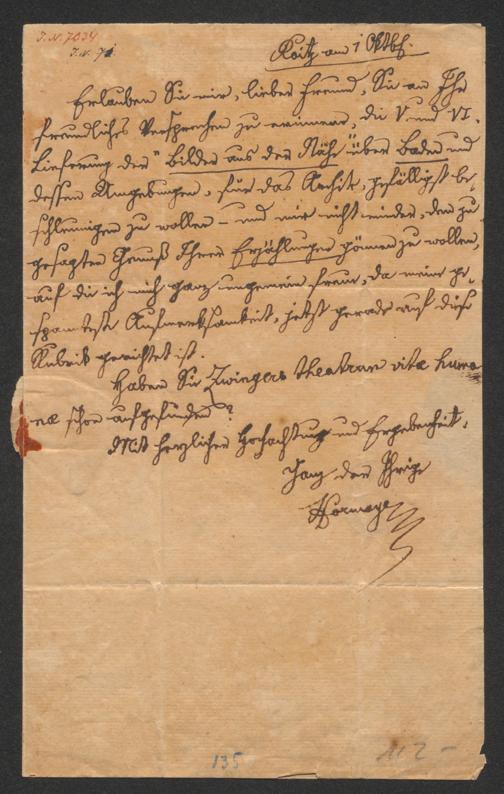 I. N. 7034
I. N. 7
Roitz am 1 Oktbr.
Erlauben Sie mir, lieber Freund, Sie an Ihr
freundliches Versprechen zu erinnern, die V. und VI.
Lieferung der "Bilder aus der Nähe" über Baden und
dessen Umgebungen, für das Archiv, gefälligst be-
schleunigen zu wollen – und mir nicht minder, den zu
gesagten Genuß Ihrer Erzählungen gönnen zu wollen,
auf die ich mich ganz ungemein freue, da meine ge-
spannteste Aufmerksamkeit, jetzt gerade auf diese
Rubrik gerichtet ist.
Haben Sie Zwingers theatrum vitae huma
nae schon aufgefunden?
Mit herzlicher Hochachtung und Ergebenheit,
Ganz der Ihrige
Hormayr
135
112 –